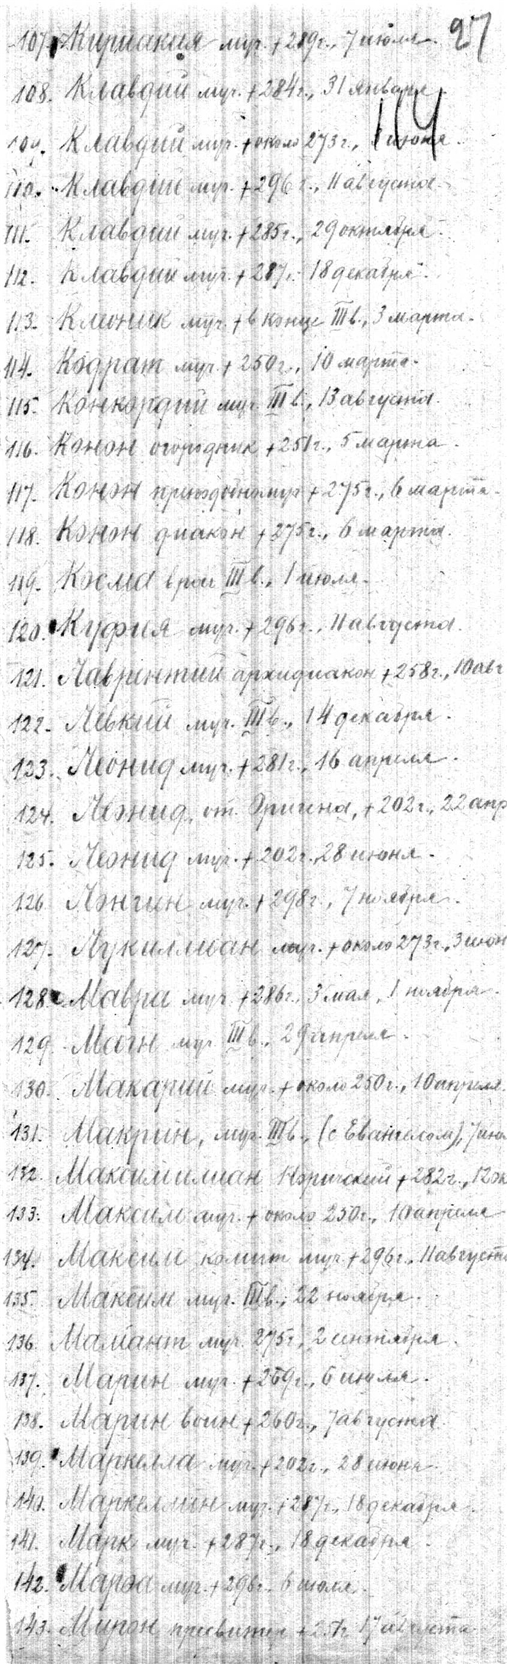 27
107. Кириакия муч. + 289г., 7 июля.
108. Клавдий муч. + 284г., 31 января.
114
109. Клавдий муч. + около 273г., июня.
110. Клавдий муч. + 296 г., 11 августа.
111. Клавдий муч. + 285г., 29 октября.
112. Клавдий муч. + 287г. 18 декабря.
113. Клеоник муч. + в конце III в., 3 марта.
114. Кодрат муч. + 250г., 10 марта.
115. Конкордий муч. III в., 13 августа.
116. Конон огородник + 251г., 5 марта.
117. Конон преподобномуч + 275г., 6 марта.
118. Конон диакон + 275г., 6 марта.
119. Косма врач III в., 1 июля.
120. Куфия муч. + 296г., 11 августа.
121. Лаврентий архидиакон + 258г., 10 авг
122. Левкий муч. III в., 14 декабря.
123. Леонид муч. + 281г., 16 апреля.
124. Леонид, от. Оригена, + 202г., 22 апр
125. Леонид муч. + 202г., 28 июня.
126. Лонгин муч. + 298г., 7 ноября.
127. Лукиллиан муч. + около 273г., 3 июн
128. Мавра муч. + 286г., 3 мая, 1 ноября.
129. Магн муч. III в., 29 апреля.
130. Макарий муч. + около 250г., 10 апреля.
131. Макрин, муч. III в., (с Евангелом), 7 июл
132. Максимилиан Норический + 282г., 12 ок
133. Максим муч. + около 250г., 10 апреля
134. Максим комит муч. + 296г., 11 августа
135. Максим муч. III в., 22 ноября.
136. Мамант муч. 275г., 2 сентября.
137. Марин муч. + 269г., 6 июля.
138. Марин воин + 260г., 7 августа.
139. Маркелла муч. + 202г., 28 июня.
140. Маркеллин муч. + 287г., 18 декабря.
141. Марк муч. + 287г., 18 декабря.
142. Марѳа муч. + 296г. 6 июля.
143. Мирон пресвитер + 251г. 17 августа.